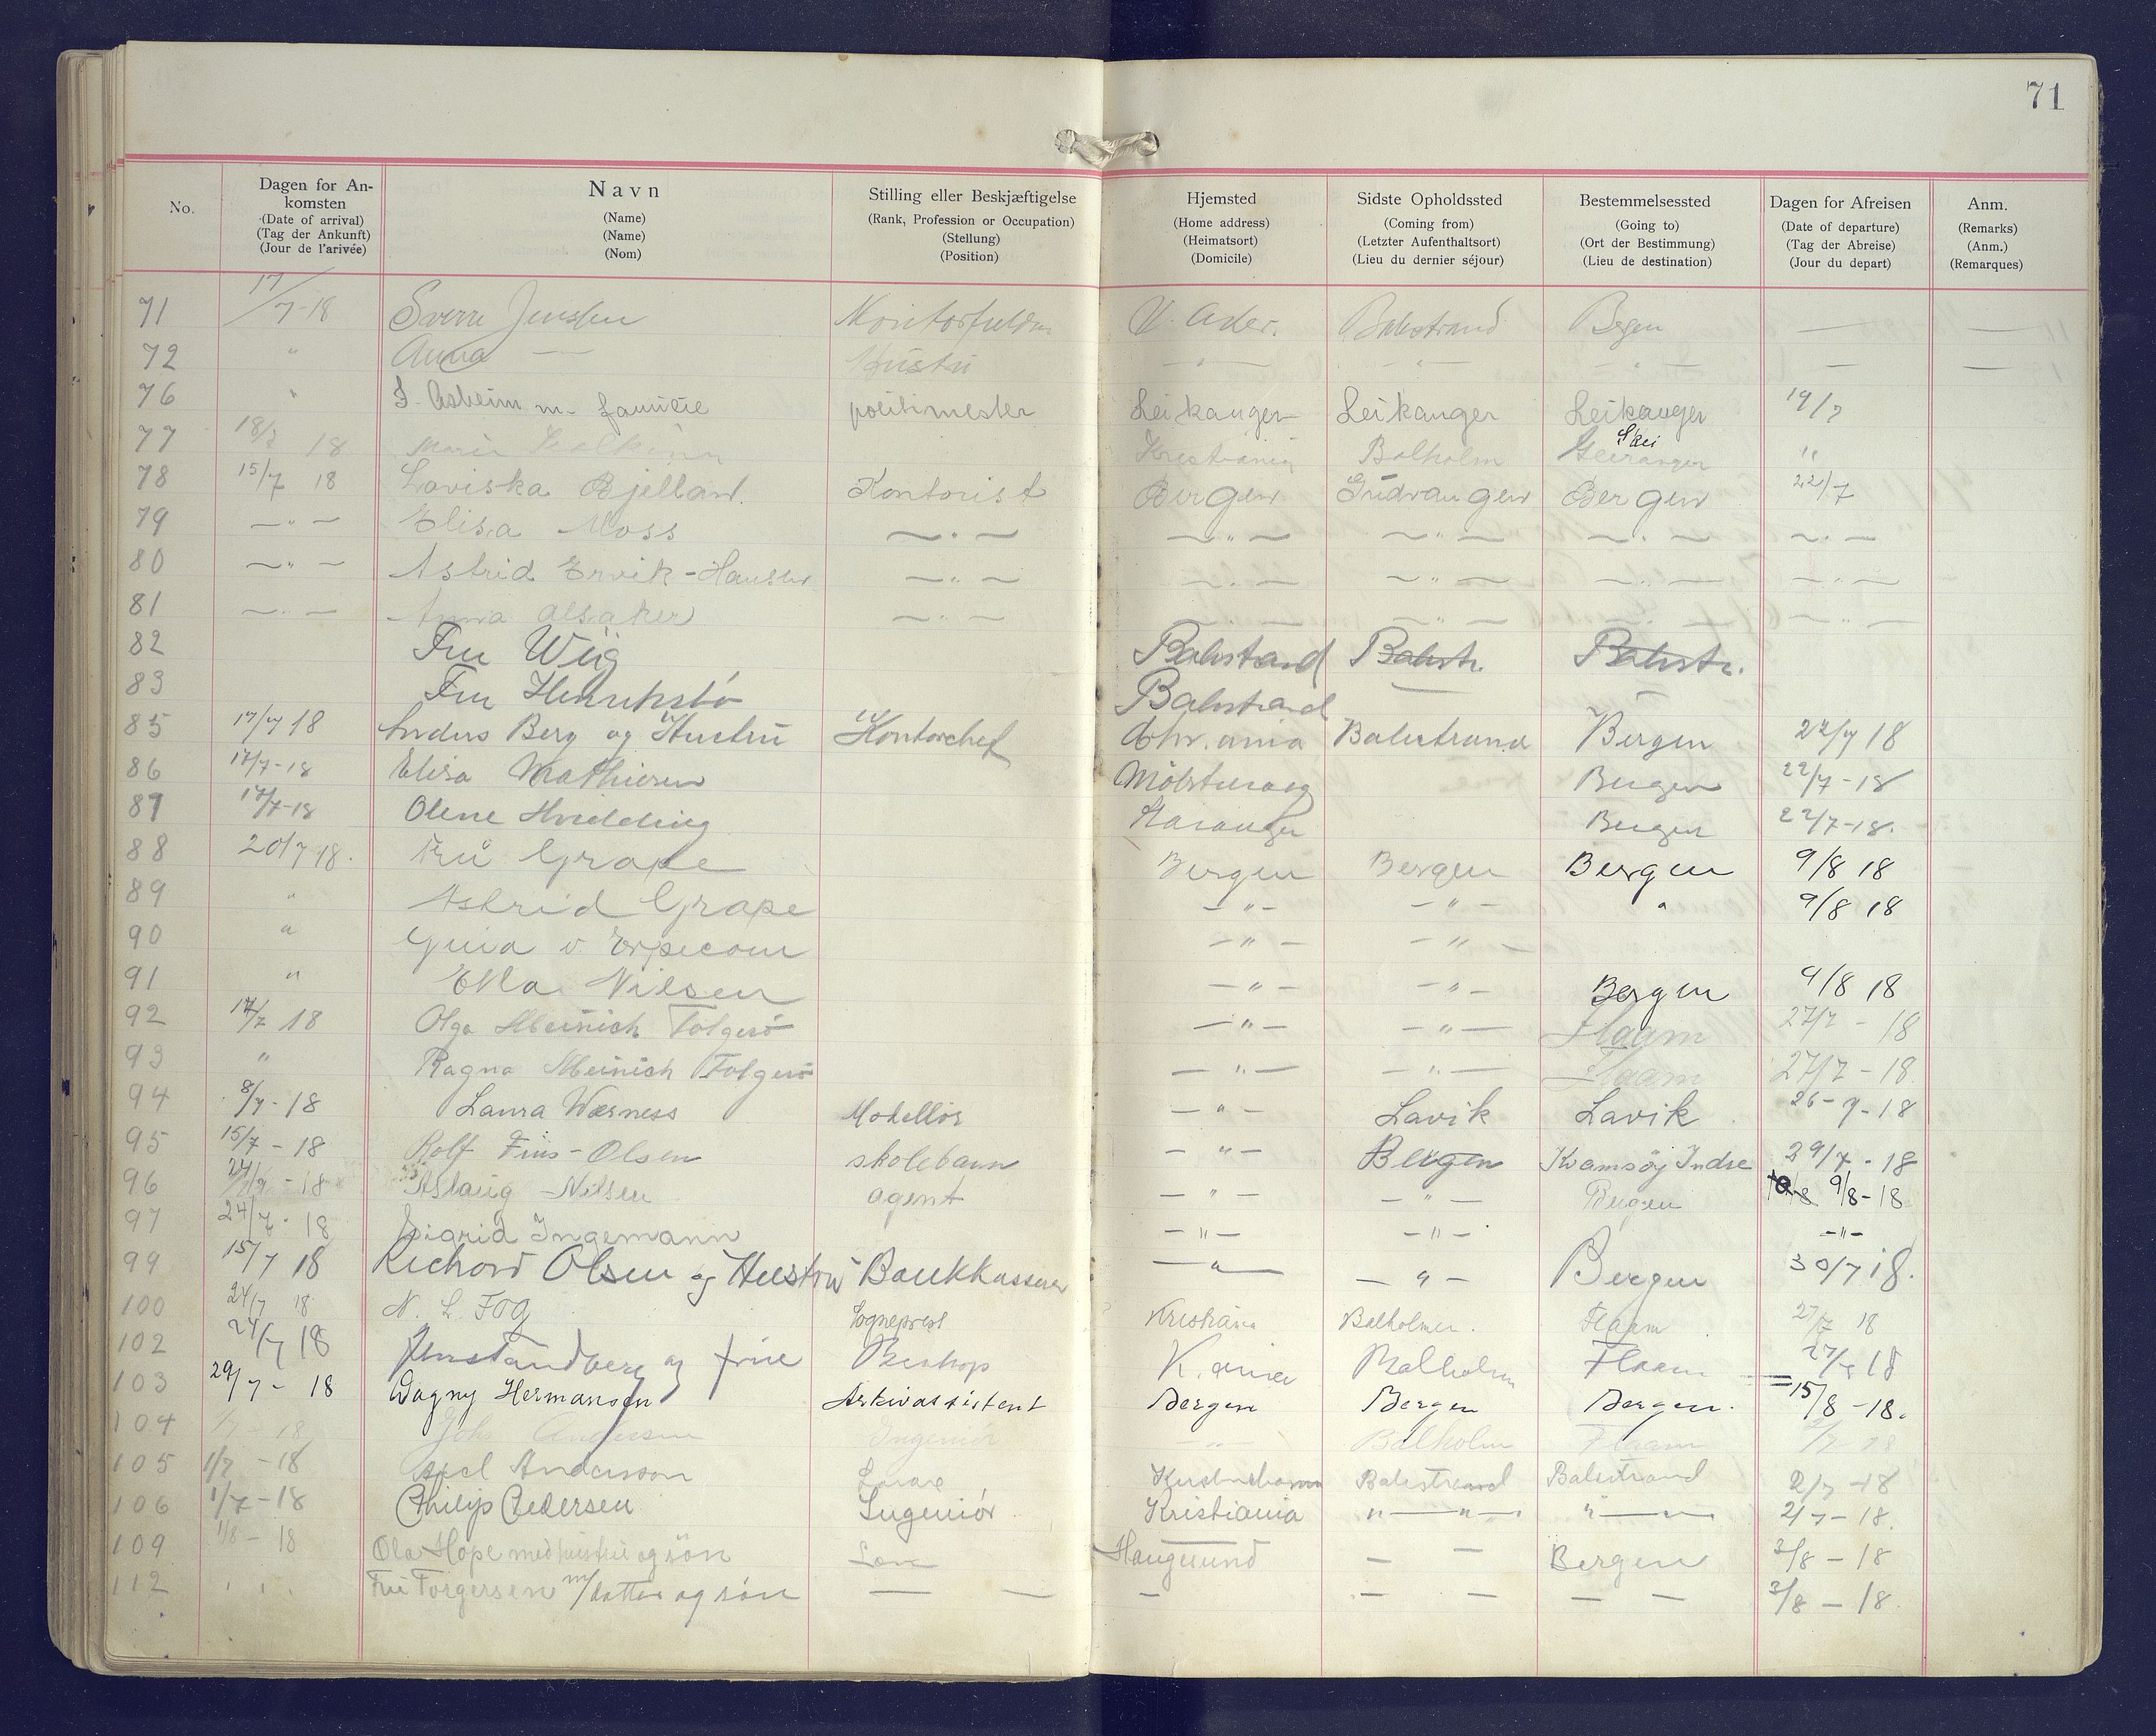 71
No.
Dagen for An-
komsten
(Date of arrival)
(Tag der Ankunft)
(Jour de l'arivée)
Navn
(Name)
(Name)
(Nom)
Stilling eller Beskjæftigelse
(Rank, Profession or Occupation)
(Stellung)
(Position)
Hjemsted
(Home address)
(Heimatsort)
(Domicile)
Sidste Opholdssted
(Coming from)
(Letzter Aufenthaltsort)
(Lieu du dernier séjour)
Bestemmelsessted
(Going to)
(Ort der Bestimmung)
(Lieu de destination)
Dagen for Afreisen
(Date of departure)
(Tag der Abreise)
(Jour du depart)
Anm.
(Remarks)
(Anm.)
(Remarques)
71 17/7-18 Sverre Jensen V. Aker. Balestrand Bergen — —
72 " Anna — Hustru — " — — " — — " — — —
76 " F. Asheim m. familie politimester Leikanger Leikanger Leikanger 19/7
77 18/7 18 Marie Kristiania Balholm Geiranger Skei "
78 15/7 18 Loviska Bjelland. Kontorist Bergen Gudvangen Bergen 22/7
79 — " — Elisa Moss — " — — " — — " — — " — — " —
80 — " — Astrid Ervik-Hansen — " — — " — — " — — " — — " —
81 — " — Anna Alsaker — " — — " — — " — — " — — " —
82 Fru Wiig Balestrand Balestr. Balestr.
83 Fru Henrikstø Balestrand
85 17/7 18 Anders Berg og Hustru Kontorchef Chr.ania Balestrand Bergen 22/7 18
86 17/7-18 Elisa Mathiesen Bergen 22/7-18
87 17/7-18 Olene Hvidding Stavanger Bergen 22/7-18.
88 20/7 18. Fru Grape Bergen Bergen Bergen 9/8 18
89 " Astrid Grape — " — — " — " 9/8 18
90 " v. Erpecom — " — — " —
91 " Ella Nilsen — " — — " — Bergen 9/8 18
92 17/7 18 Olga Meinich Folgerø — " — — " — Flaam 27/7 - 18
93 " Ragna Meinich Folgerø — " — — " — Flaam 27/7 - 18
94 8/7-18 Laura Wærness — " — Lavik Lavik 26-7-18
95 15/7-18 Rolf Friis-Olsen skolebarn — " — Bergen Kvamsøy Indre 29/7-18
96 -18 Aslaug Nilsen agent — " — — " — Bergen 9/8-18
97 24/7-18 Sigrid Ingemann — " — — " — — " —
99 15/7 18 Richard Olsen og Hustru Bankkasserer — " — — " — Bergen 30/7 18.
100 24/7 18 N. L. Fog Sogneprest Kristiania Balholmen. Flaam 27/7 18
102 24/7 18 Jens Tandberg og frue Biskop K.ania Balholm Flaam 27/7 18
103 29/7-18 Dagny Hermansen Arkivassistent Bergen Bergen Bergen. 15/8-18.
104 1/7-18 Joh. Andersen Ingeniør — " — Balholm Flaam 2/7 18
105 1/7-18 Axel Andersson Balestrand Balestrand 2/7-18
106 1/7-18 Philip Pedersen Ingeniør Kristiania " — " — " — 2/7-18.
109 1/8-18 Ola Hope med hustru og søn Haugesund — — Bergen 3/8-18
112 " " " Fru Torgersen m/datter og søn — — — — — — — 3/8-18.